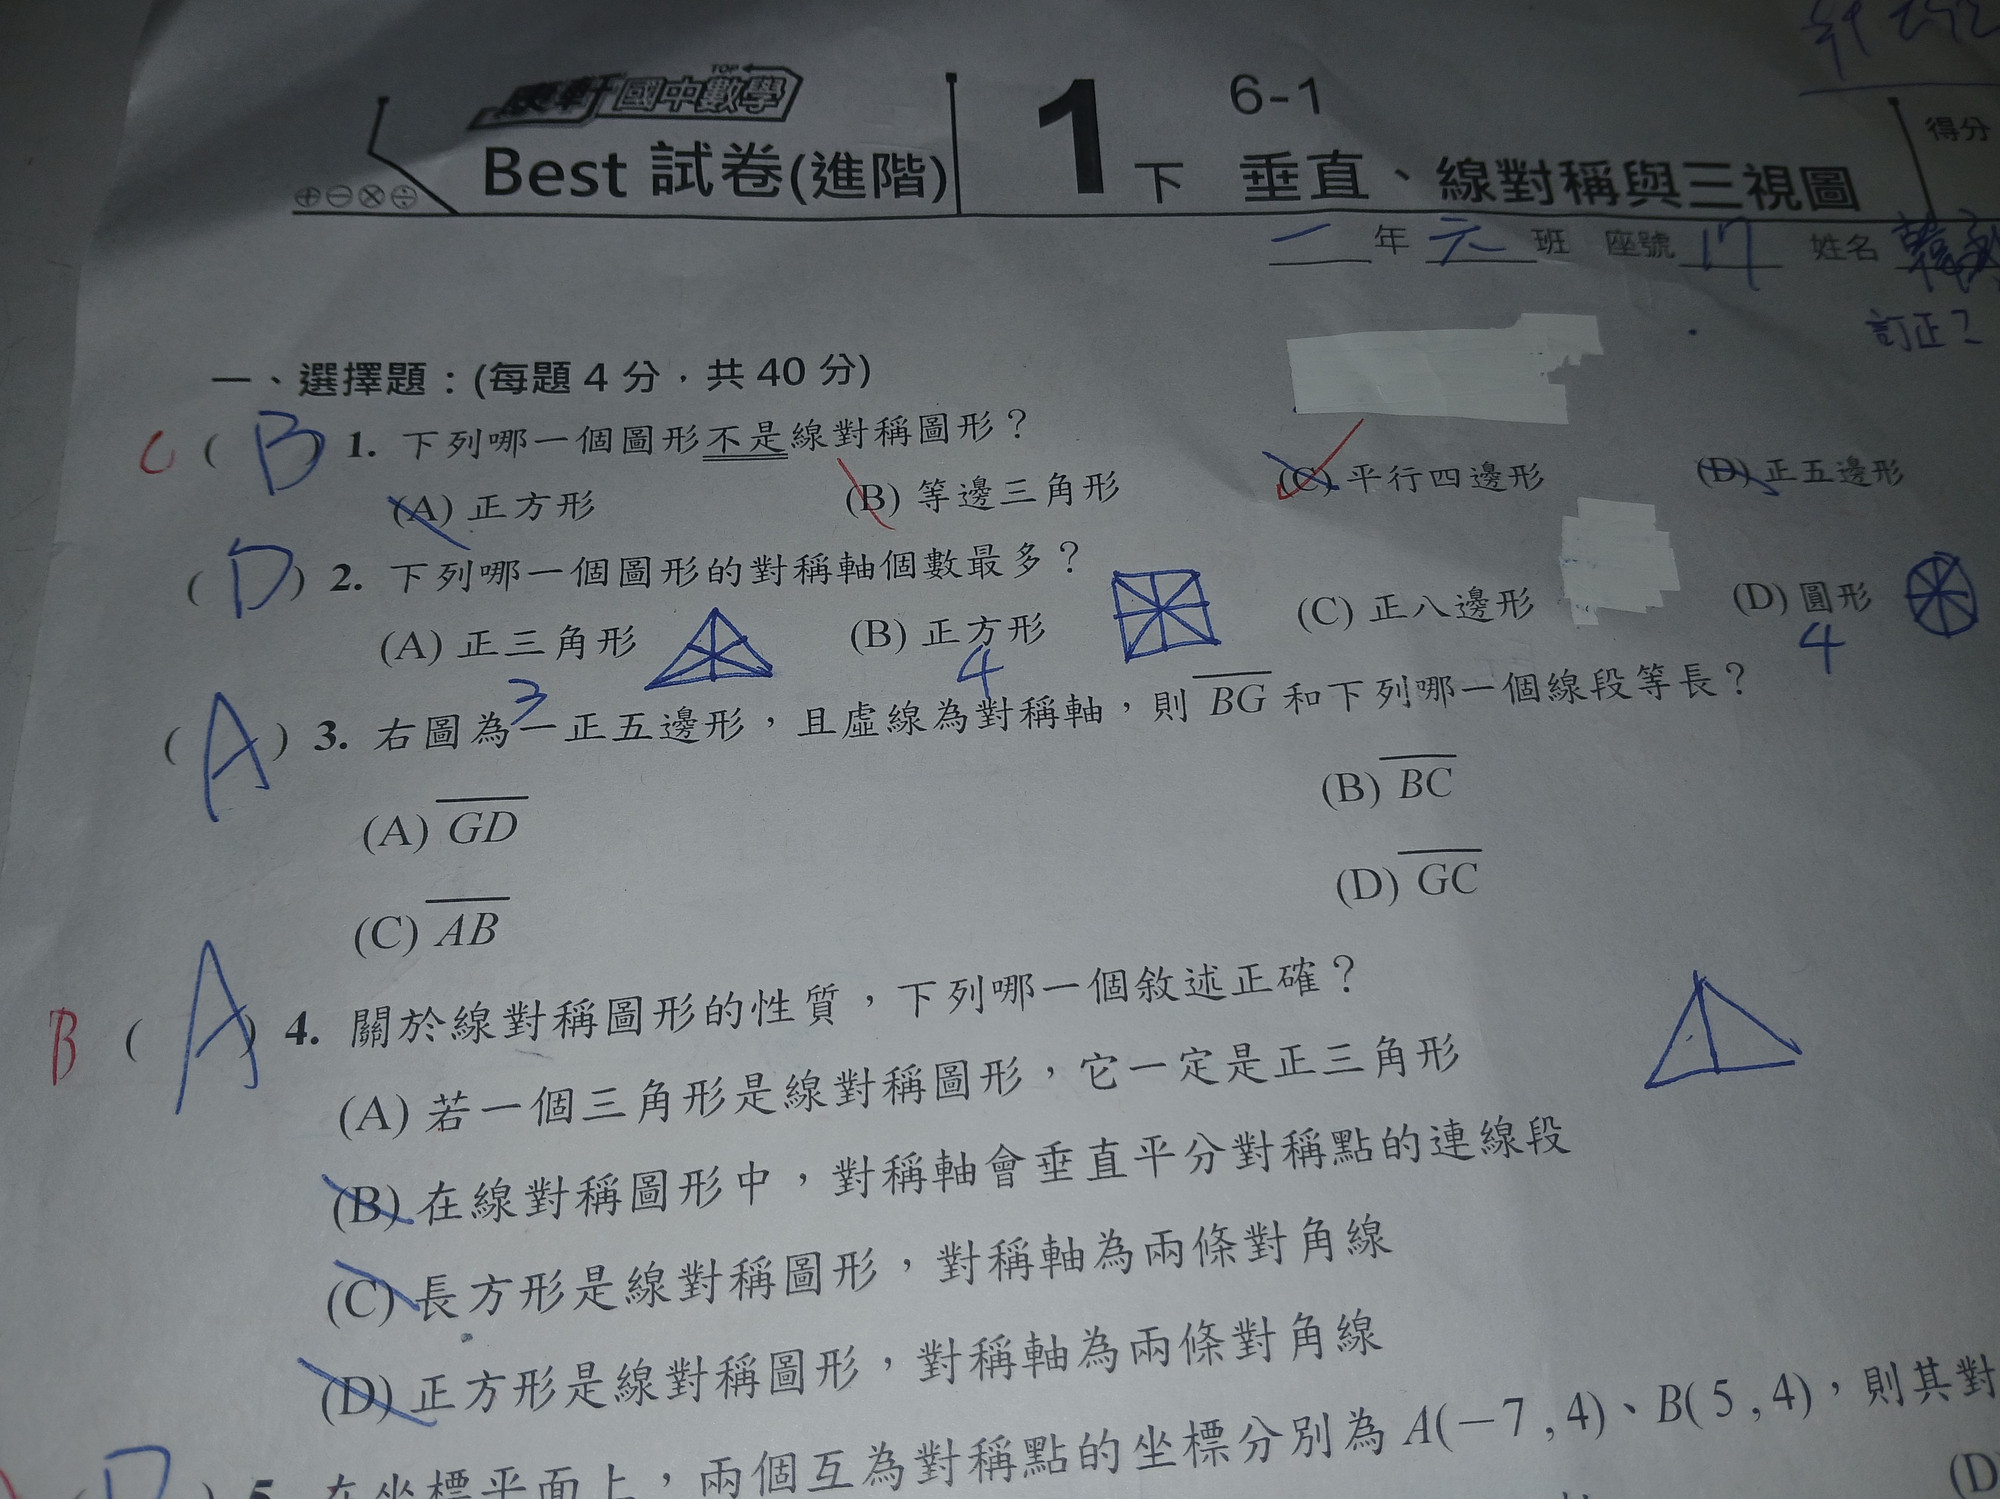 康軒 國中數學 TOP
Best 試卷(進階) 1下 6-1 垂直、線對稱與三視圖 得分
一年 元班 座號 17 姓名
訂正2
一、選擇題：(每題 4 分，共 40 分)
C ( B ) 1. 下列哪一個圖形不是線對稱圖形？
(A) 正方形 (B) 等邊三角形 (C) 平行四邊形 (D) 正五邊形
( D ) 2. 下列哪一個圖形的對稱軸個數最多？
(A) 正三角形 (B) 正方形 (C) 正八邊形 (D) 圓形
3 4 4
( A ) 3. 右圖為一正五邊形，且虛線為對稱軸，則 BG 和下列哪一個線段等長？
(A) GD (B) BC
(C) AB (D) GC
B ( A ) 4. 關於線對稱圖形的性質，下列哪一個敘述正確？
(A) 若一個三角形是線對稱圖形，它一定是正三角形
(B) 在線對稱圖形中，對稱軸會垂直平分對稱點的連線段
(C) 長方形是線對稱圖形，對稱軸為兩條對角線
(D) 正方形是線對稱圖形，對稱軸為兩條對角線
( D ) 5. 在坐標平面上，兩個互為對稱點的坐標分別為 A(－7 , 4)、B( 5 , 4)，則其對
(D)